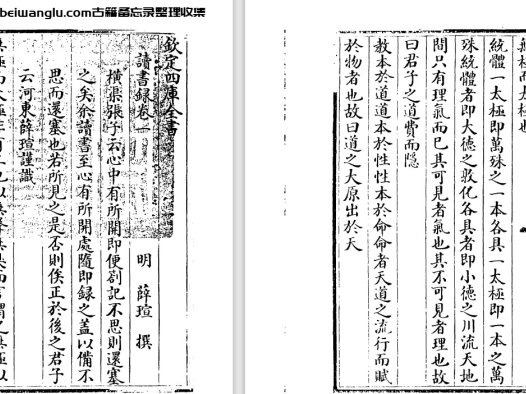 beiwanglu.com古籍备忘录整理收集
欽定四庫全書
讀書録卷一
明 薛瑄 撰
橫渠張子云心中有所開即便劄記不思則還塞
之矣余讀書至心有所開處隨即録之盖以備不
思而還塞也若所見之是否則俟正於後之君子
云河東薛瑄謹識
無極而太極非有二也以無聲無臭而言謂之無極以
無極而太極也
統體一太極即萬殊之一本各具一太極即一本之萬
殊統體者即大德之敦化各具者即小德之川流天地
間只有理氣而已其可見者氣也其不可見者理也故
曰君子之道費而隱
教本於道道本於性性本於命命者天道之流行而賦
於物者也故曰道之大原出於天